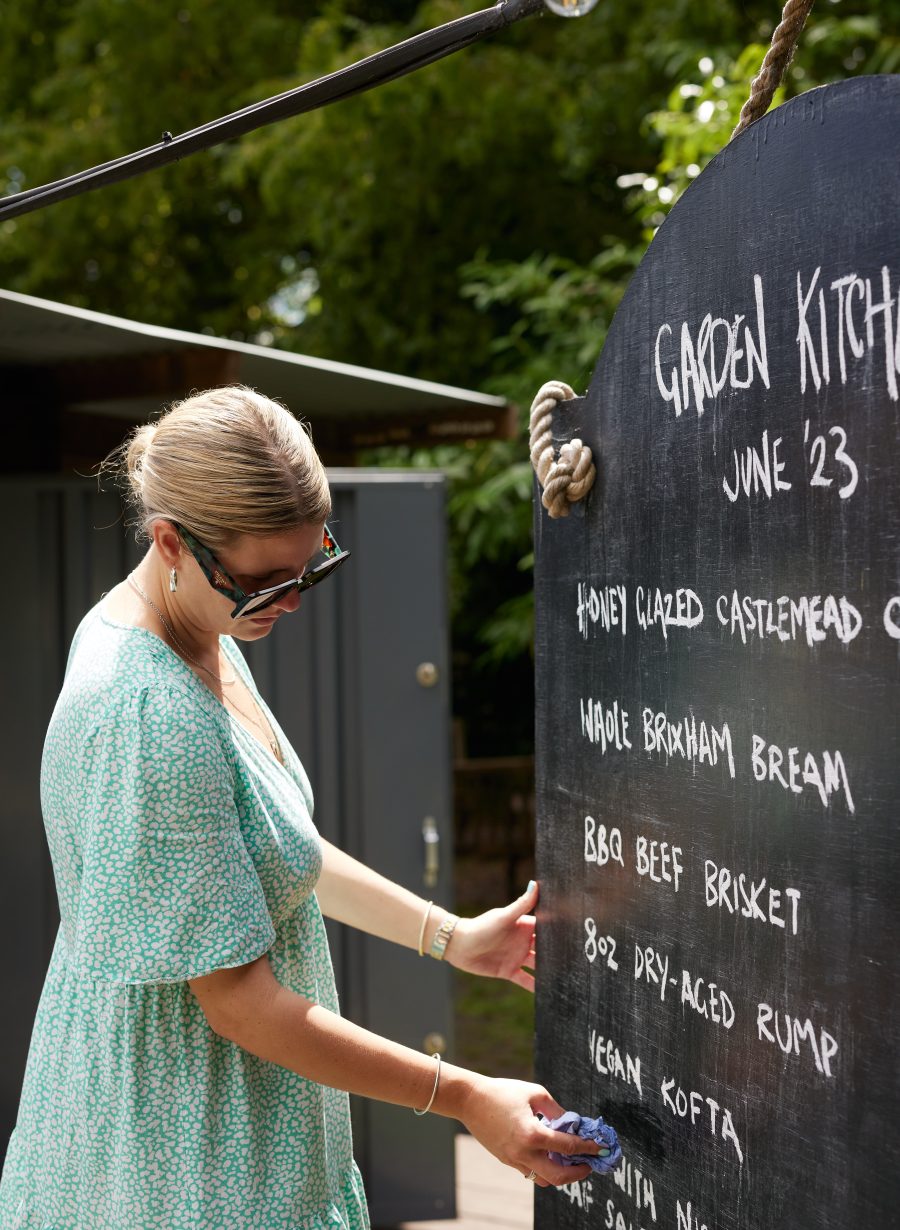 GARDEN KITCH
JUNE '23
HONEY GLAZED CASTLEMEAD
WHOLE BRIXHAM BREAM
BBQ BEEF BRISKET
8oz DRY-AGED RUMP
VEGAN KOFTA
WITH